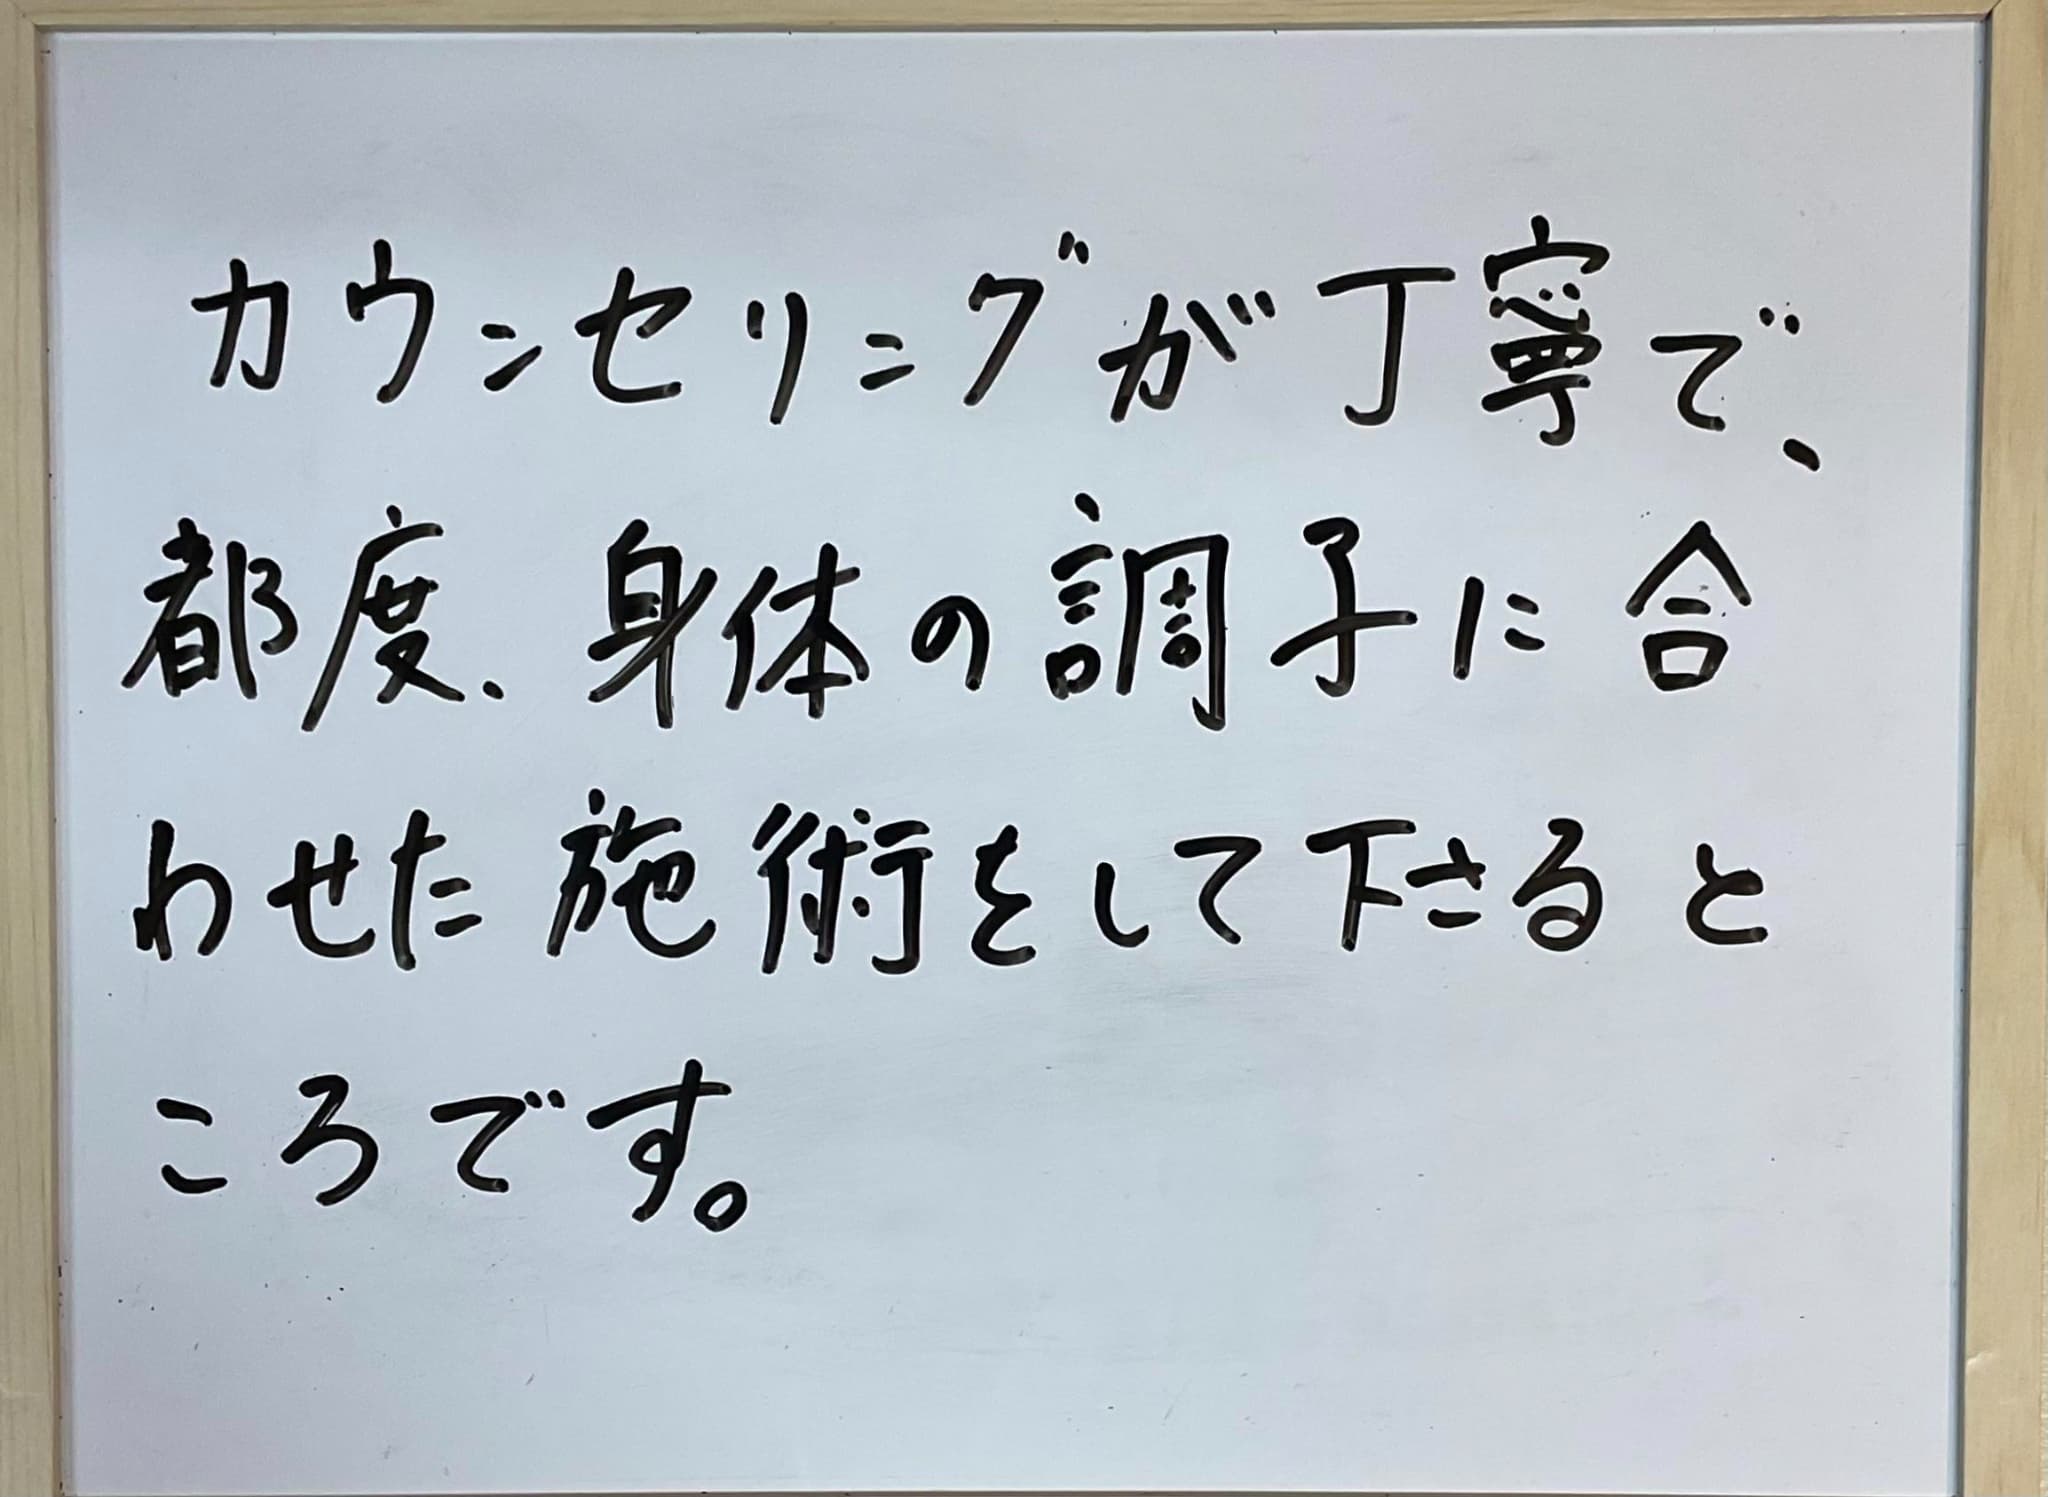 カウンセリングが丁寧で、
都度、身体の調子に合
わせた施術をして下さると
ころです。